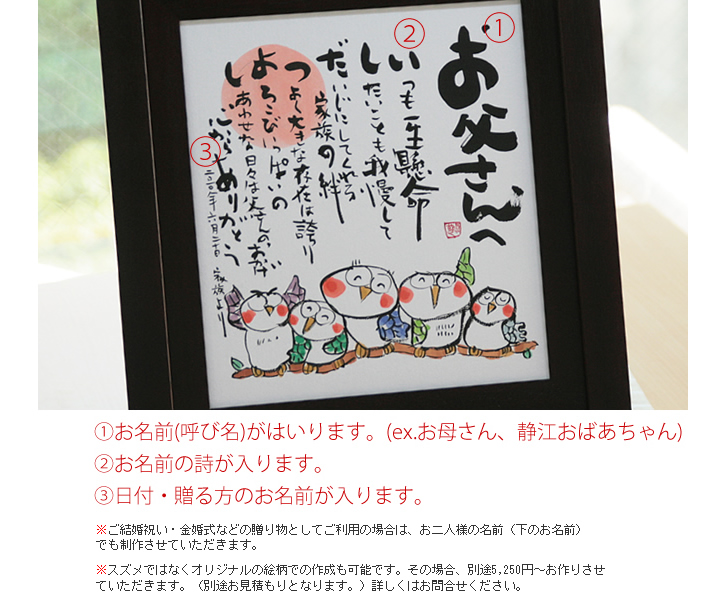 ①
お父さんへ
②
いつも一生懸命
したいことも我慢して
だいじにしてくれる
家族の絆
つよく大きな存在は誇り
よろこびいっぱいの
しあわせな日々は父さんのおかげ
心からありがとう
③
二〇一〇年六月二十日 家族より
①お名前(呼び名)がはいります。(ex.お母さん、静江おばあちゃん)
②お名前の詩が入ります。
③日付・贈る方のお名前が入ります。
※ご結婚祝い・金婚式などの贈り物としてご利用の場合は、お二人様の名前（下のお名前）
でも制作させていただきます。
※スズメではなくオリジナルの絵柄での作成も可能です。その場合、別途5,250円～お作りさせ
ていただきます。（別途お見積もりとなります。）詳しくはお問合せください。